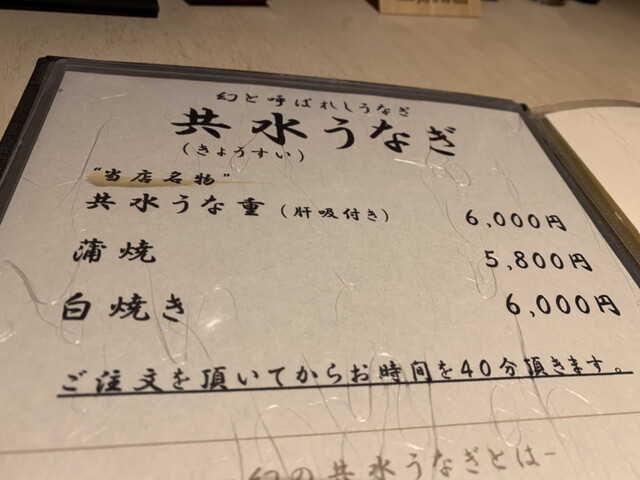 幻と呼ばれしうなぎ
共水うなぎ
(きょうすい)
"当店名物"
共水うな重(肝吸付き) 6,000円
蒲焼 5,800円
白焼き 6,000円
ご注文を頂いてからお時間を40分頂きます。
幻の共水うなぎとは-